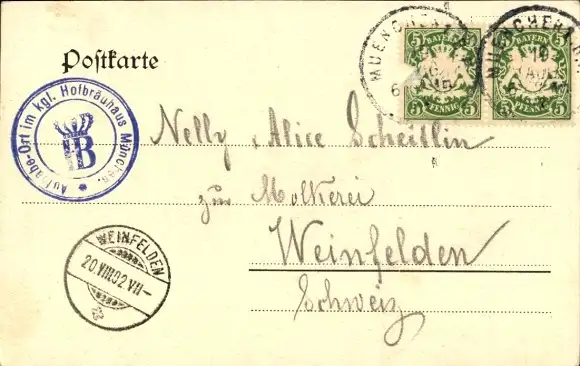 Postkarte
Aufgabe-Ort im kgl. Hofbräuhaus München.
HB
MUENCHEN
19 AUG
5 BAYERN 5
5 PFENNIG 5
MUENCHEN
19 AUG
5 BAYERN 5
5 PFENNIG 5
Nelly & Alice Scheitlin
zur Molkerei
Weinfelden
Schweiz
WEINFELDEN
20.VIII.02.VII-